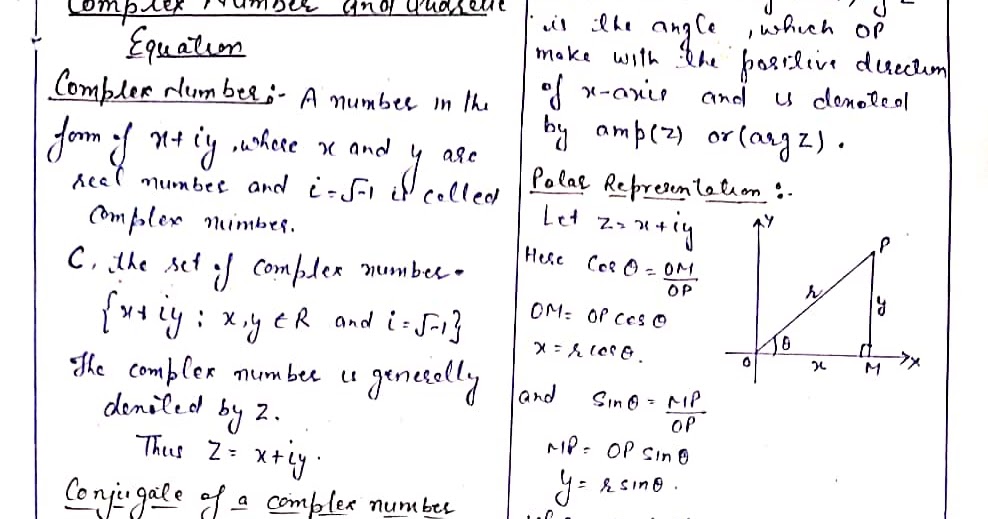 Complex Number and Quadratic
Equation
Complex Number:- A number in the
form of x+iy, where x and y are
real number and i=√-1 is called
Complex number.
C, the set of complex number.
{x+iy : x,y ∈ R and i=√-1}
The complex number is generally
denoted by z.
Thus Z = x+iy.
Conjugate of a complex number
is the angle, which OP
make with the positive direction
of x-axis and is denoted
by amp(z) or (arg z).
Polar Representation :-
Let z = x+iy
Here Cos θ = OM/OP
OM = OP cos θ
x = r cos θ.
and Sin θ = MP/OP
MP = OP sin θ
y = r sin θ.
Y
P
r
y
θ
O
x
M
X